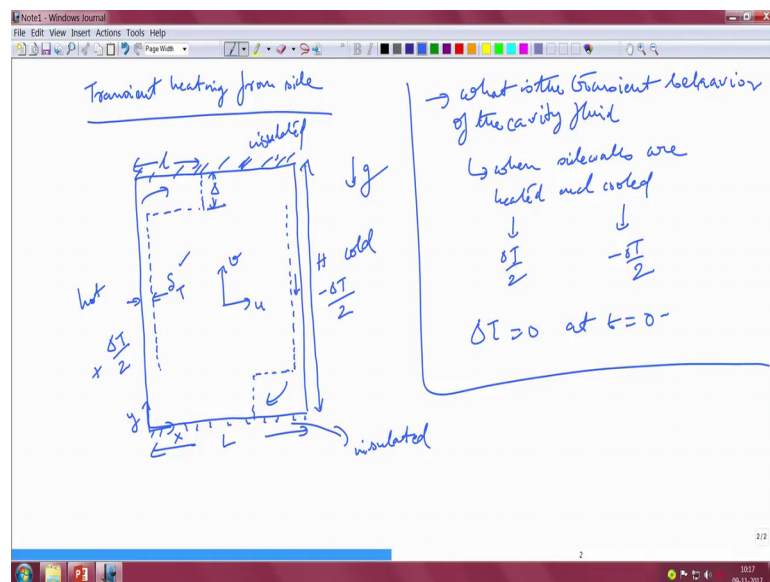 Note1 - Windows Journal
File Edit View Insert Actions Tools Help
Page Width
B I
Transient heating from side
insulated
l
Δ
↓g
hot
δT
v
u
H
cold
ΔT/2
-ΔT/2
x
y
x
L
insulated
→ what is the transient behavior
of the cavity fluid
↳ when sidewalls are
heated and cooled
↓ ↓
ΔT/2 -ΔT/2
ΔT = 0 at t = 0-
2/2
2
10:17
09-11-2017